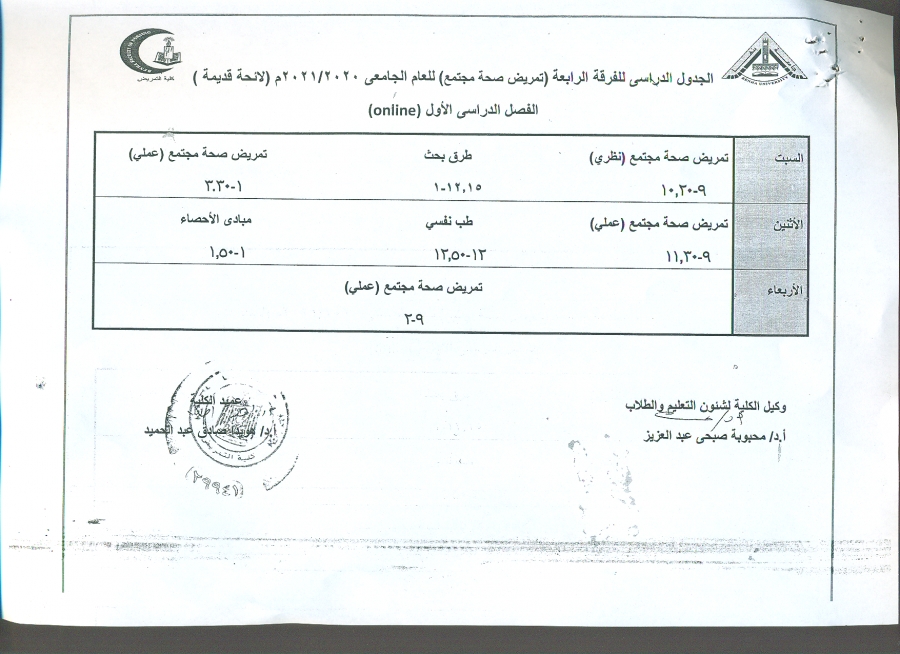 الجدول الدراسى للفرقة الرابعة (تمريض صحة مجتمع) للعام الجامعى ٢٠٢١/٢٠٢٠م (لائحة قديمة )
الفصل الدراسى الأول (online)
كلية التمريض
BENHA UNIVERSITY
السبت
تمريض صحة مجتمع (نظري) طرق بحث تمريض صحة مجتمع (عملي)
٩-١٠,٣٠ ١٢,١٥-١ ١-٣.٣٠
الأثنين
تمريض صحة مجتمع (عملي) طب نفسي مبادى الأحصاء
٩-١١,٣٠ ١٢-١٢,٥٠ ١-١,٥٠
الأربعاء
تمريض صحة مجتمع (عملي)
٩-٢
وكيل الكلية لشئون التعليم والطلاب
أ.د/ محبوبة صبحى عبد العزيز
عميد الكلية
أ.د/ هويدا صادق عبد الحميد
كلية التمريض
(٢٩٩٤١)